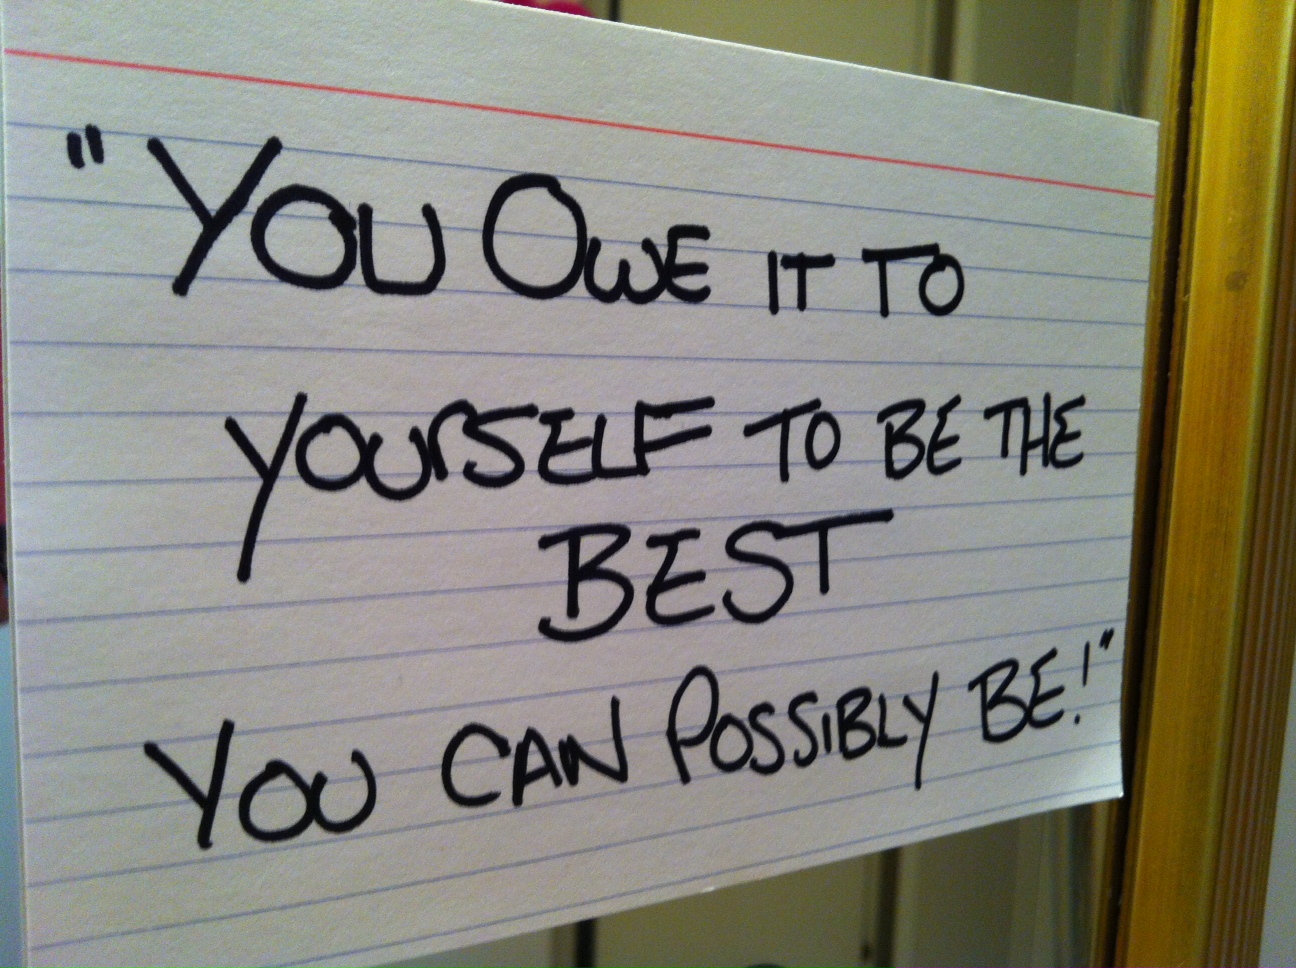 "YOU OWE IT TO
YOURSELF TO BE THE
BEST
YOU CAN POSSIBLY BE!"